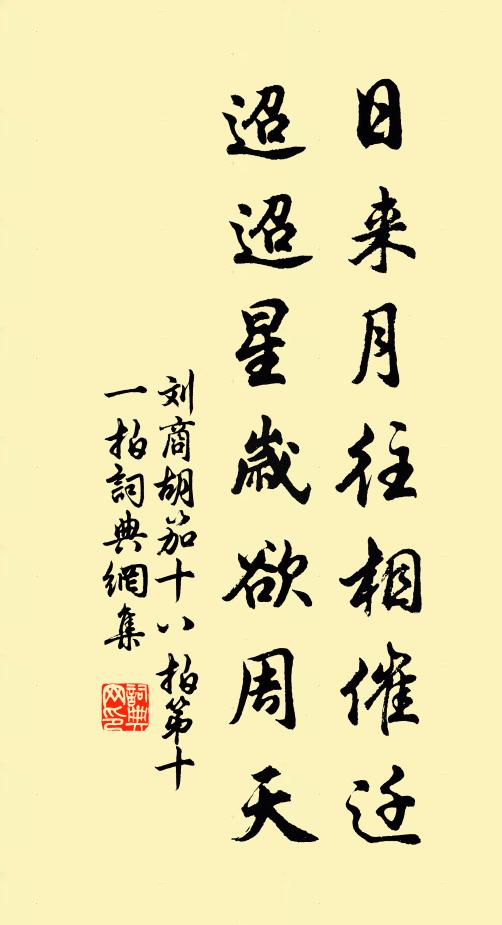 日来月往相催迁
迢迢星歲欲周天
刘商胡笳十八拍第十
一拍詞典網集
詞典网印